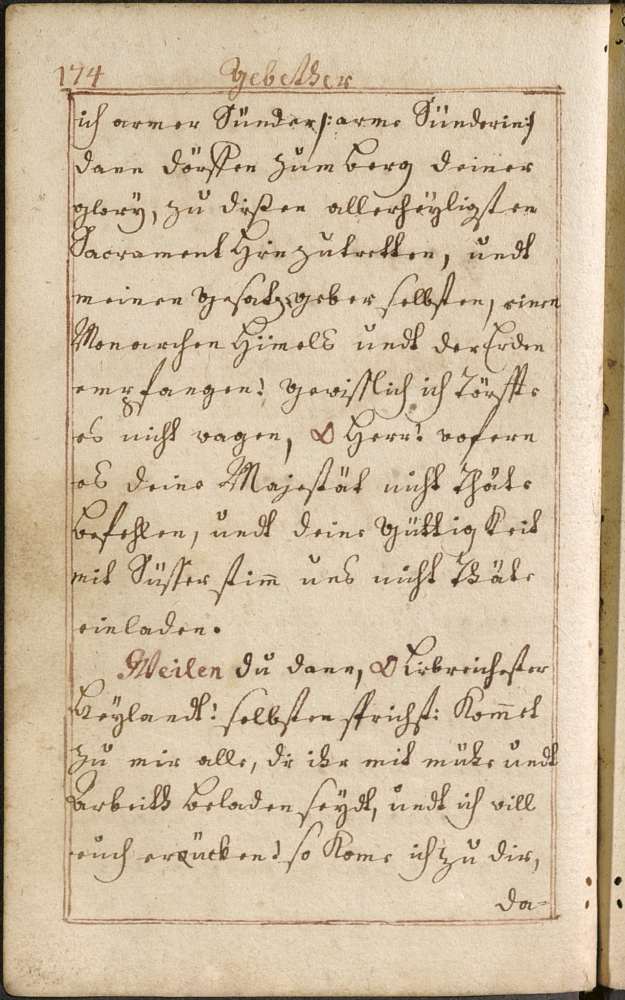 174 Gebether
ich armer Sünder /: arme Sünderin :/
dann dörffen zum berg deiner
glory, zu dißen allerheyligsten
Sacrament hinzutretten, undt
meinen gesatzgeber selbsten, einen
Monarchen Himels undt der Erden
empfangen! gewißlich ich Törffte
es nicht wagen, O Herr! wofern
es deine Majestät nicht Thäte
befehlen, undt deine güttigkeit
mit Süsser stim̄ uns nicht Thäte
einladen.
Weilen du dann, O Liebreichester
Heylandt! selbsten sprichst: Kom̄et
zu mir alle, die ihr mit mühe undt
Arbeith beladen seydt, undt ich will
euch erquicken! so Kome ich zu dir,
da-